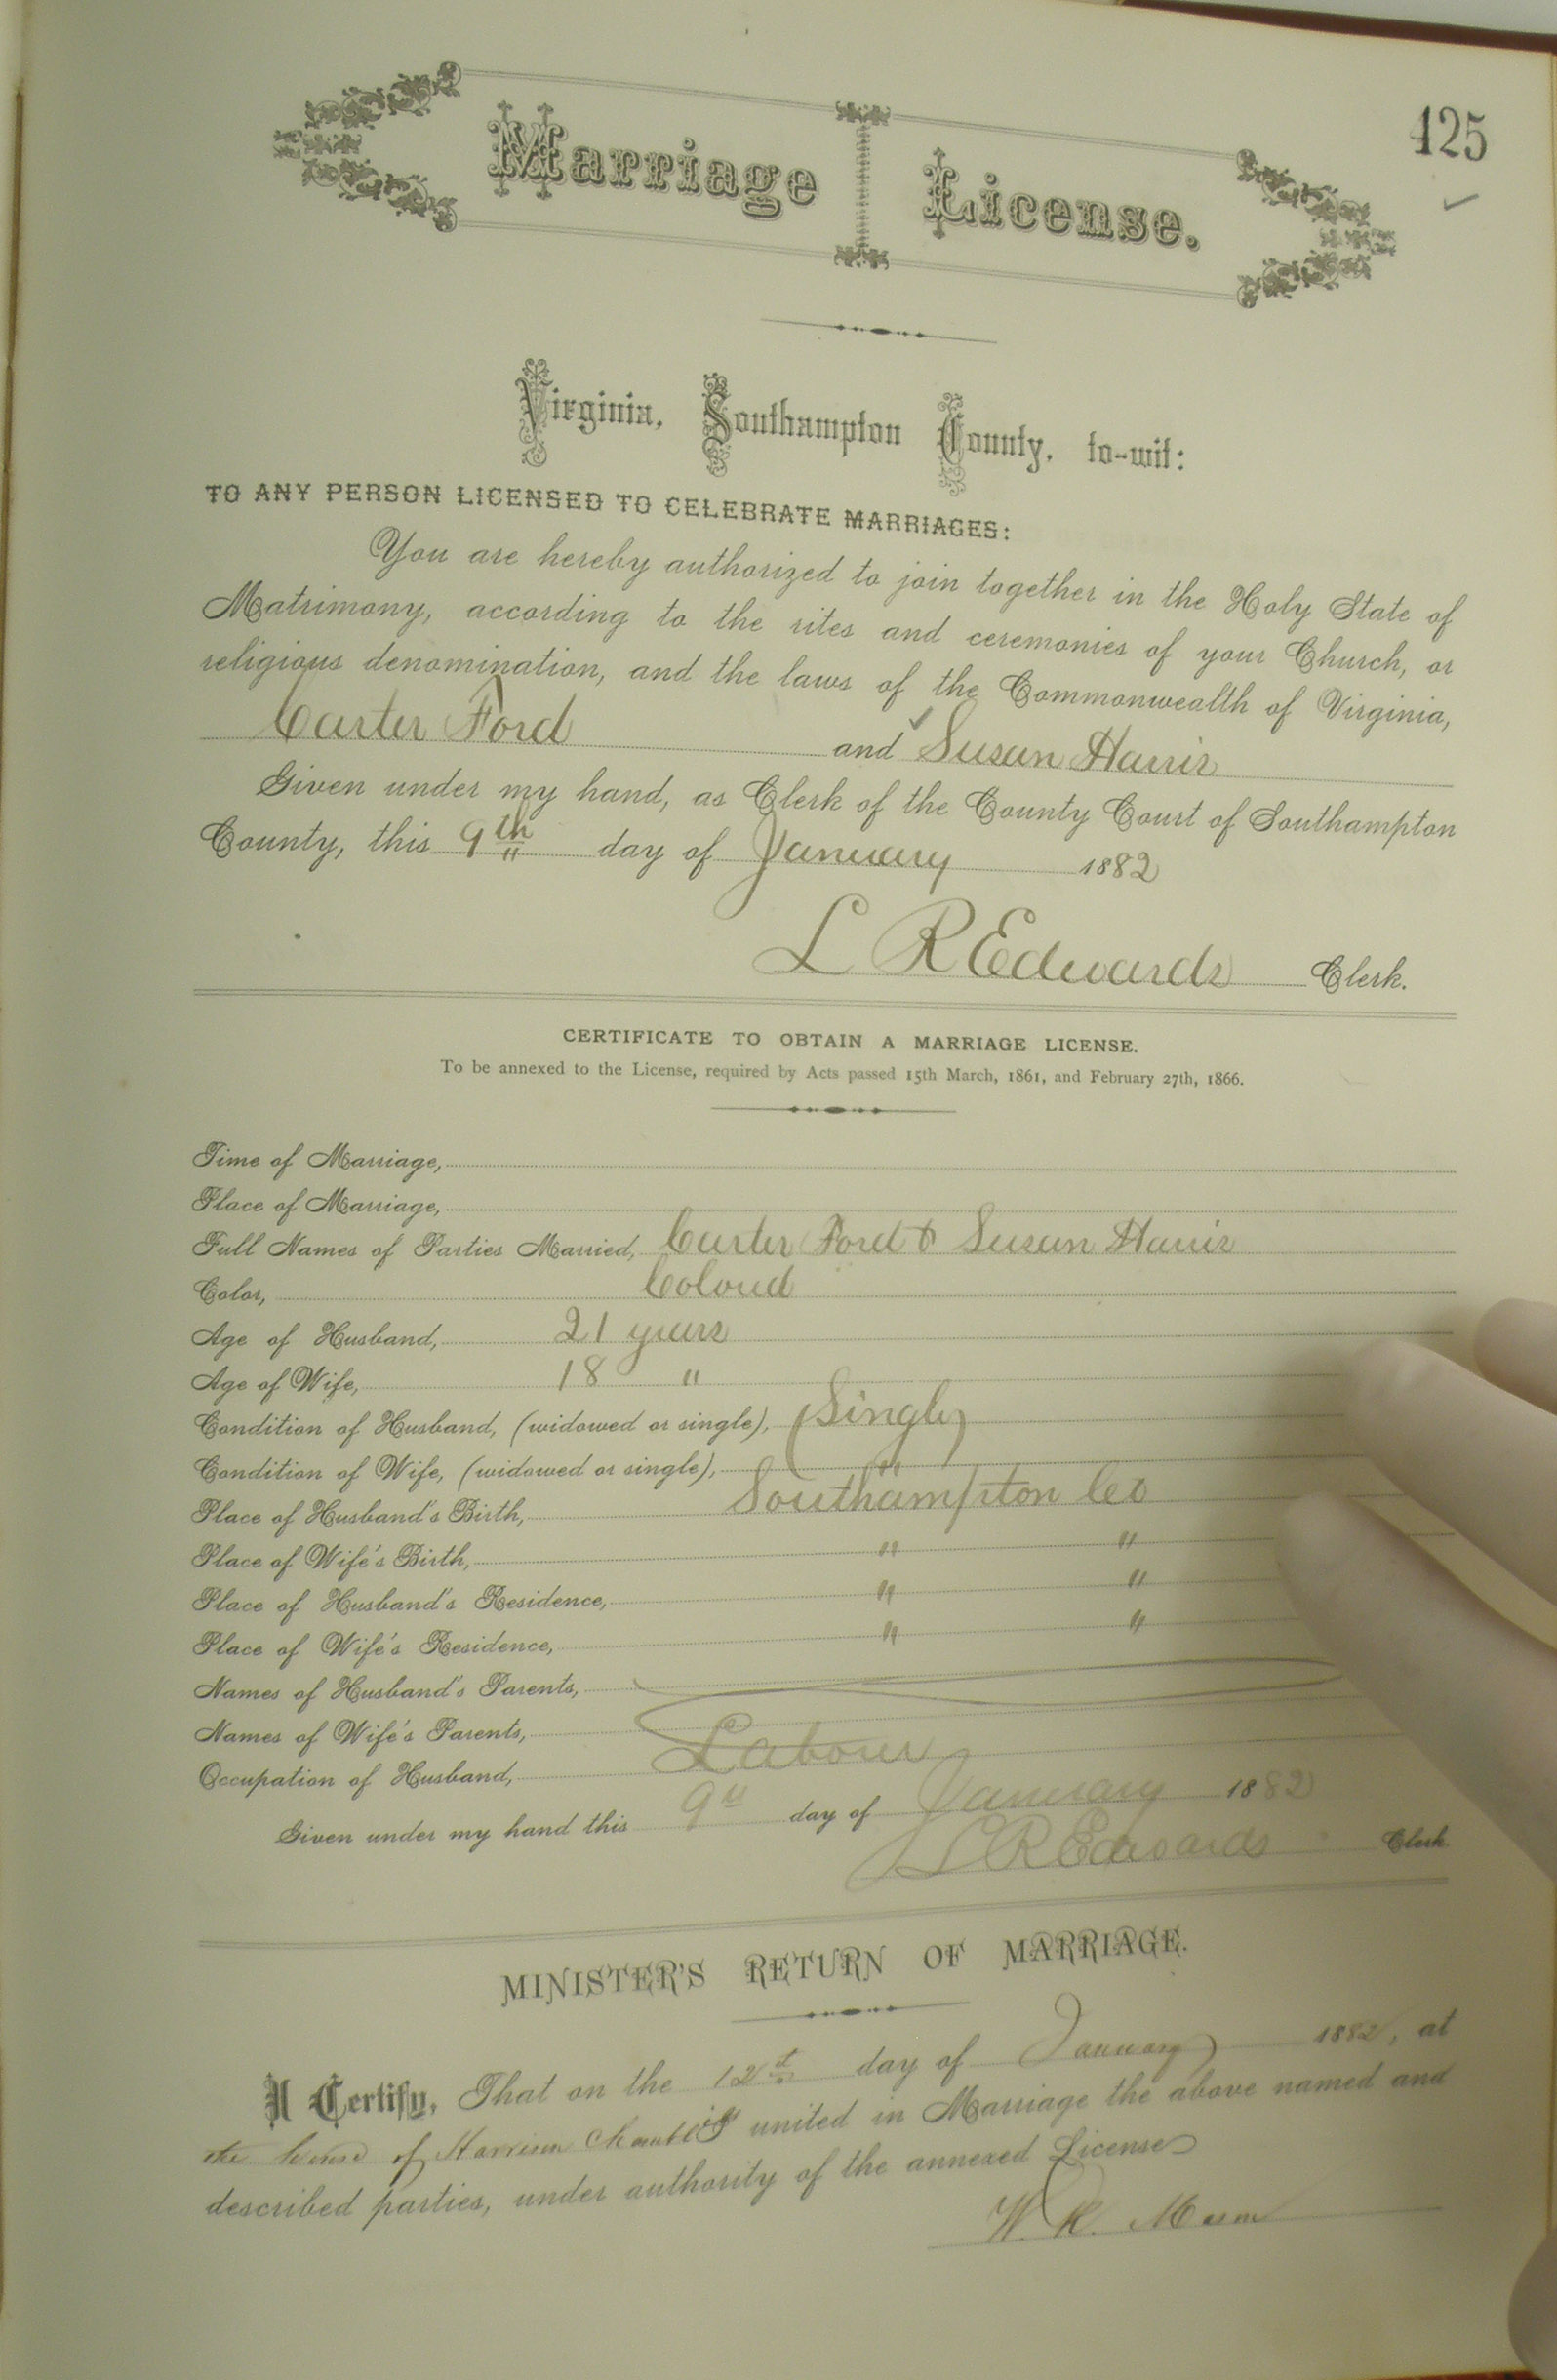 125
Marriage License.
Virginia, Southampton County, to-wit:
TO ANY PERSON LICENSED TO CELEBRATE MARRIAGES:
You are hereby authorized to join together in the Holy State of
Matrimony, according to the rites and ceremonies of your Church, or
religious denomination, and the laws of the Commonwealth of Virginia,
Carter Ford and Susan Harris
Given under my hand, as Clerk of the County Court of Southampton
County, this 9th day of January 1882
L R Edwards Clerk.
CERTIFICATE TO OBTAIN A MARRIAGE LICENSE.
To be annexed to the License, required by Acts passed 15th March, 1861, and February 27th, 1866.
Time of Marriage,
Place of Marriage,
Full Names of Parties Married, Carter Ford & Susan Harris
Color, Colourd
Age of Husband, 21 years
Age of Wife, 18 "
Condition of Husband, (widowed or single), Single
Condition of Wife, (widowed or single), "
Place of Husband's Birth, Southampton Co
Place of Wife's Birth, " "
Place of Husband's Residence, " "
Place of Wife's Residence, " "
Names of Husband's Parents,
Names of Wife's Parents,
Occupation of Husband, Labourer
Given under my hand this 9th day of January 1882
L R Edwards Clerk
MINISTER'S RETURN OF MARRIAGE.
I Certify, That on the 12th day of January 1882, at
the house of Harrison united in Marriage the above named and
described parties, under authority of the annexed License
W. R. Mason